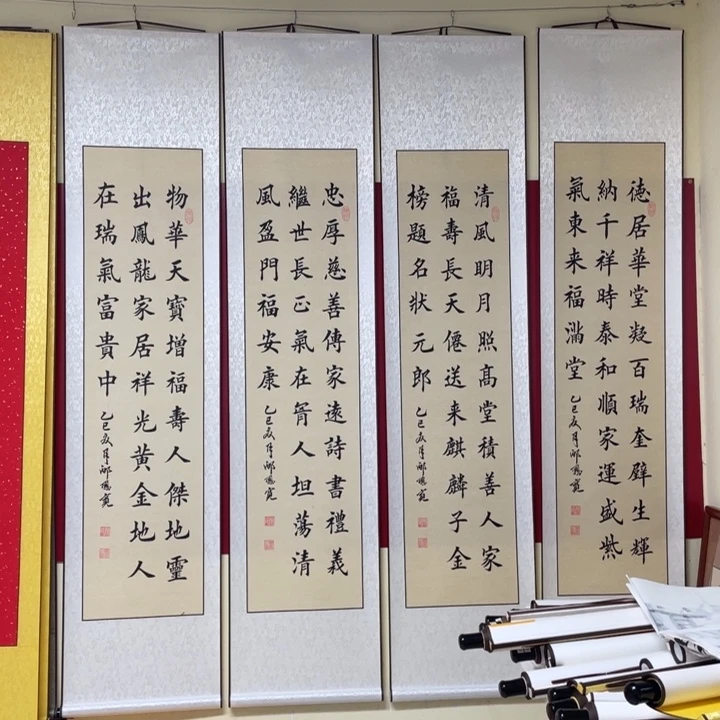 徳居華堂凝百瑞奎壁生輝
納千祥時泰和順家運盛紫
氣東来福滿堂
乙巳夏月
清風明月照髙堂積善人家
福壽長天僊送来麒麟子金
榜題名狀元郎
乙巳夏月
忠厚慈善傳家遠詩書禮義
繼世長正氣在胷人坦蕩清
風盈門福安康
乙巳夏月
物華天寶增福壽人傑地靈
出鳳龍家居祥光黄金地人
在瑞氣富貴中
乙巳夏月